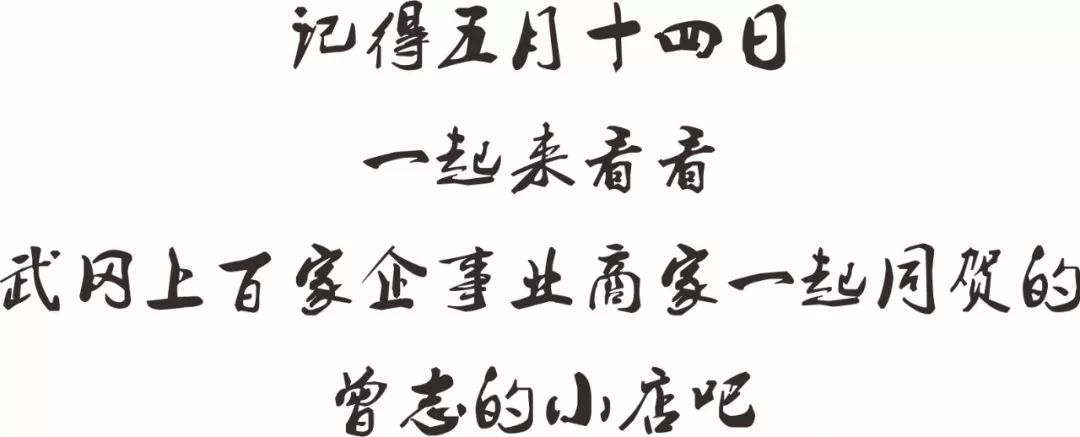 记得五月十四日
一起来看看
武冈上百家企事业商家一起同贺的
曾志的小店吧